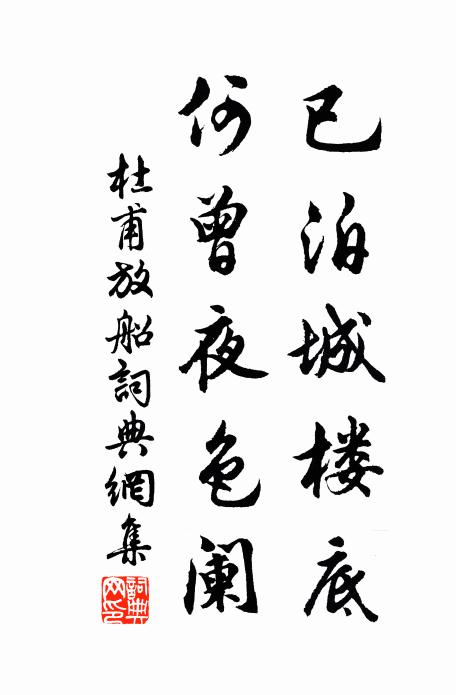 已泊城楼底
何曾夜色阑
杜甫放船詞典網集
詞典网印